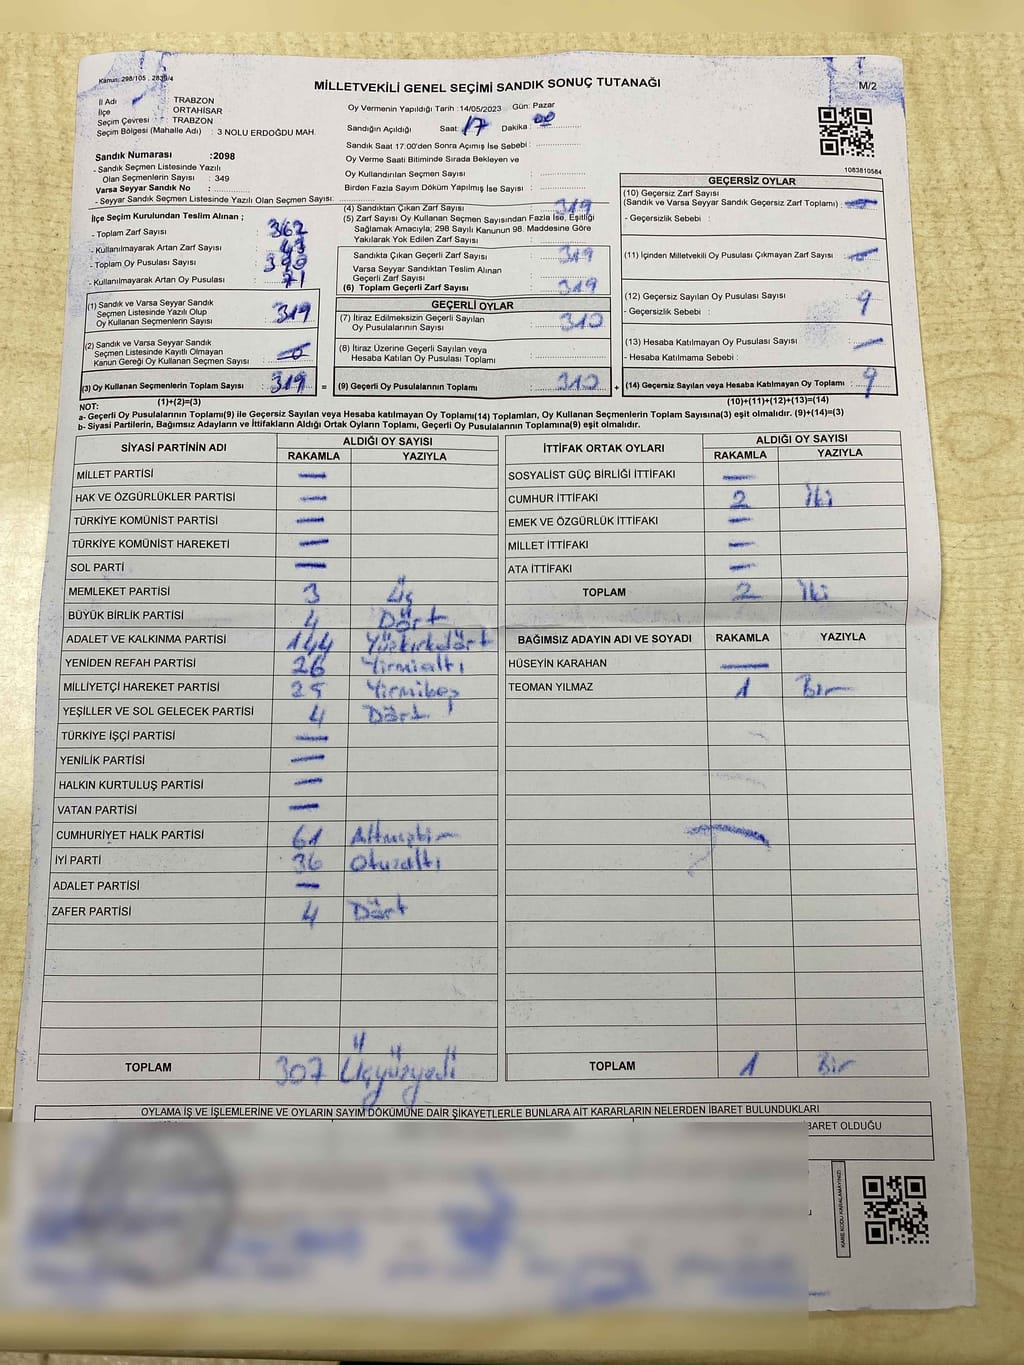 Kanun: 298/105 , 2839/4
MİLLETVEKİLİ GENEL SEÇİMİ SANDIK SONUÇ TUTANAĞI
M/2
İl Adı : TRABZON
İlçe : ORTAHİSAR
Seçim Çevresi : TRABZON
Seçim Bölgesi (Mahalle Adı) : 3 NOLU ERDOĞDU MAH.
Sandık Numarası :2098
- Sandık Seçmen Listesinde Yazılı
Olan Seçmenlerin Sayısı : 349
Varsa Seyyar Sandık No :
- Seyyar Sandık Seçmen Listesinde Yazılı Olan Seçmen Sayısı:
Oy Vermenin Yapıldığı Tarih :14/05/2023 Gün: Pazar
Sandığın Açıldığı Saat: 17 Dakika : 00
Sandık Saat 17:00'den Sonra Açımış İse Sebebi :
Oy Verme Saati Bitiminde Sırada Bekleyen ve
Oy Kullandırılan Seçmen Sayısı :
Birden Fazla Sayım Döküm Yapılmış İse Sayısı :
1083810584
İlçe Seçim Kurulundan Teslim Alınan ;
- Toplam Zarf Sayısı : 362
- Kullanılmayarak Artan Zarf Sayısı : 43
- Toplam Oy Pusulası Sayısı : 390
- Kullanılmayarak Artan Oy Pusulası : 71
(1) Sandık ve Varsa Seyyar Sandık
Seçmen Listesinde Yazılı Olup
Oy Kullanan Seçmenlerin Sayısı : 319
(2) Sandık ve Varsa Seyyar Sandık
Seçmen Listesinde Kayıtlı Olmayan
Kanun Gereği Oy Kullanan Seçmen Sayısı :
(3) Oy Kullanan Seçmenlerin Toplam Sayısı : 319 =
(1)+(2)=(3)
(4) Sandıktan Çıkan Zarf Sayısı : 319
(5) Zarf Sayısı Oy Kullanan Seçmen Sayısından Fazla İse, Eşitliği
Sağlamak Amacıyla; 298 Sayılı Kanunun 98. Maddesine Göre
Yakılarak Yok Edilen Zarf Sayısı :
Sandıkta Çıkan Geçerli Zarf Sayısı : 319
Varsa Seyyar Sandıktan Teslim Alınan
Geçerli Zarf Sayısı :
(6) Toplam Geçerli Zarf Sayısı : 319
GEÇERLİ OYLAR
(7) İtiraz Edilmeksizin Geçerli Sayılan
Oy Pusulalarının Sayısı : 310
(8) İtiraz Üzerine Geçerli Sayılan veya
Hesaba Katılan Oy Pusulası Toplamı :
(9) Geçerli Oy Pusulalarının Toplamı : 310 +
GEÇERSİZ OYLAR
(10) Geçersiz Zarf Sayısı
(Sandık ve Varsa Seyyar Sandık Geçersiz Zarf Toplamı) :
- Geçersizlik Sebebi :
(11) İçinden Milletvekili Oy Pusulası Çıkmayan Zarf Sayısı :
(12) Geçersiz Sayılan Oy Pusulası Sayısı : 9
- Geçersizlik Sebebi :
(13) Hesaba Katılmayan Oy Pusulası Sayısı :
- Hesaba Katılmama Sebebi :
(14) Geçersiz Sayılan veya Hesaba Katılmayan Oy Toplamı : 9
(10)+(11)+(12)+(13)=(14)
NOT:
a- Geçerli Oy Pusulalarının Toplamı(9) ile Geçersiz Sayılan veya Hesaba katılmayan Oy Toplamı(14) Toplamları, Oy Kullanan Seçmenlerin Toplam Sayısına(3) eşit olmalıdır. (9)+(14)=(3)
b- Siyasi Partilerin, Bağımsız Adayların ve İttifakların Aldığı Ortak Oyların Toplamı, Geçerli Oy Pusulalarının Toplamına(9) eşit olmalıdır.
SİYASİ PARTİNİN ADI ALDIĞI OY SAYISI
RAKAMLA YAZIYLA
MİLLET PARTİSİ —
HAK VE ÖZGÜRLÜKLER PARTİSİ —
TÜRKİYE KOMÜNİST PARTİSİ —
TÜRKİYE KOMÜNİST HAREKETİ —
SOL PARTİ —
MEMLEKET PARTİSİ 3 Üç
BÜYÜK BİRLİK PARTİSİ 4 Dört
ADALET VE KALKINMA PARTİSİ 144 Yüzkırkdört
YENİDEN REFAH PARTİSİ 26 Yirmialtı
MİLLİYETÇİ HAREKET PARTİSİ 25 Yirmibeş
YEŞİLLER VE SOL GELECEK PARTİSİ 4 Dört
TÜRKİYE İŞÇİ PARTİSİ —
YENİLİK PARTİSİ —
HALKIN KURTULUŞ PARTİSİ —
VATAN PARTİSİ —
CUMHURİYET HALK PARTİSİ 61 Altmışbir
İYİ PARTİ 36 Otuzaltı
ADALET PARTİSİ —
ZAFER PARTİSİ 4 Dört
TOPLAM 307 Üçyüzyedi
İTTİFAK ORTAK OYLARI ALDIĞI OY SAYISI
RAKAMLA YAZIYLA
SOSYALİST GÜÇ BİRLİĞİ İTTİFAKI —
CUMHUR İTTİFAKI 2 İki
EMEK VE ÖZGÜRLÜK İTTİFAKI —
MİLLET İTTİFAKI —
ATA İTTİFAKI —
TOPLAM 2 İki
BAĞIMSIZ ADAYIN ADI VE SOYADI RAKAMLA YAZIYLA
HÜSEYİN KARAHAN —
TEOMAN YILMAZ 1 Bir
TOPLAM 1 Bir
OYLAMA İŞ VE İŞLEMLERİNE VE OYLARIN SAYIM DÖKÜMÜNE DAİR ŞİKAYETLERLE BUNLARA AİT KARARLARIN NELERDEN İBARET BULUNDUKLARI
BARET OLDUĞU
KARE KODU KARALAMAYINIZ!